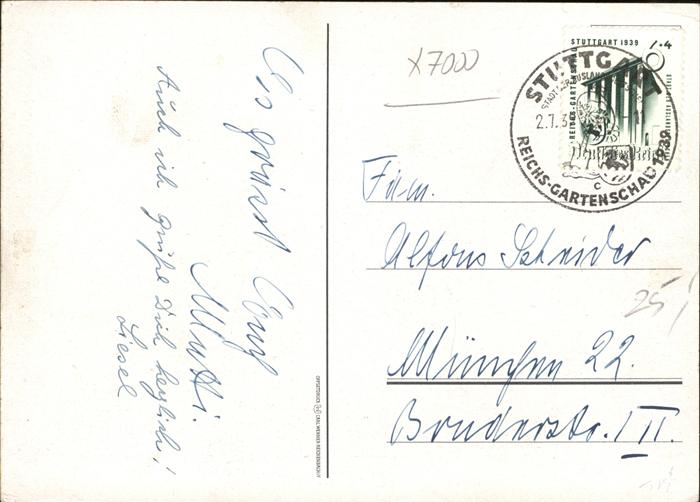 Es grüsst Euch
Mutti.
Auch ich grüße Dich herzlich!
Liesel
x7000
STUTTGART 1939
1.4
STUTTGART
2.7.3
REICHS-GARTENSCHAU 1939
C
Deutsches Reich
Fam.
Alfons Schneider
25
München 22.
Bruderstr. 1 II.
OFFSETDRUCK CARL WERNER REICHENBACH i.V.